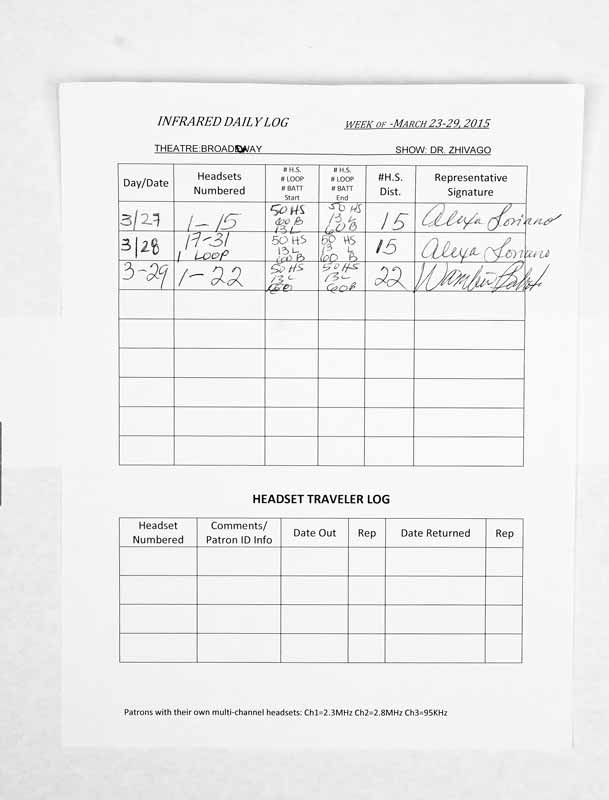 INFRARED DAILY LOG WEEK OF - MARCH 23-29, 2015
THEATRE:BROADWAY SHOW: DR. ZHIVAGO
Day/Date Headsets Numbered # H.S. # LOOP # BATT Start # H.S. # LOOP # BATT End #H.S. Dist. Representative Signature
3/27 1-15 50 HS 600 B 13 L 50 HS 13 L 600 B 15 Alexa Soriano
3/28 17-31 1 LOOP 50 HS 13 L 600 B 50 HS 13 L 600 B 15 Alexa Soriano
3-29 1-22 50 HS 13 L 50 HS 13 L 22
HEADSET TRAVELER LOG
Headset Numbered Comments/ Patron ID Info Date Out Rep Date Returned Rep
Patrons with their own multi-channel headsets: Ch1=2.3MHz Ch2=2.8MHz Ch3=95KHz